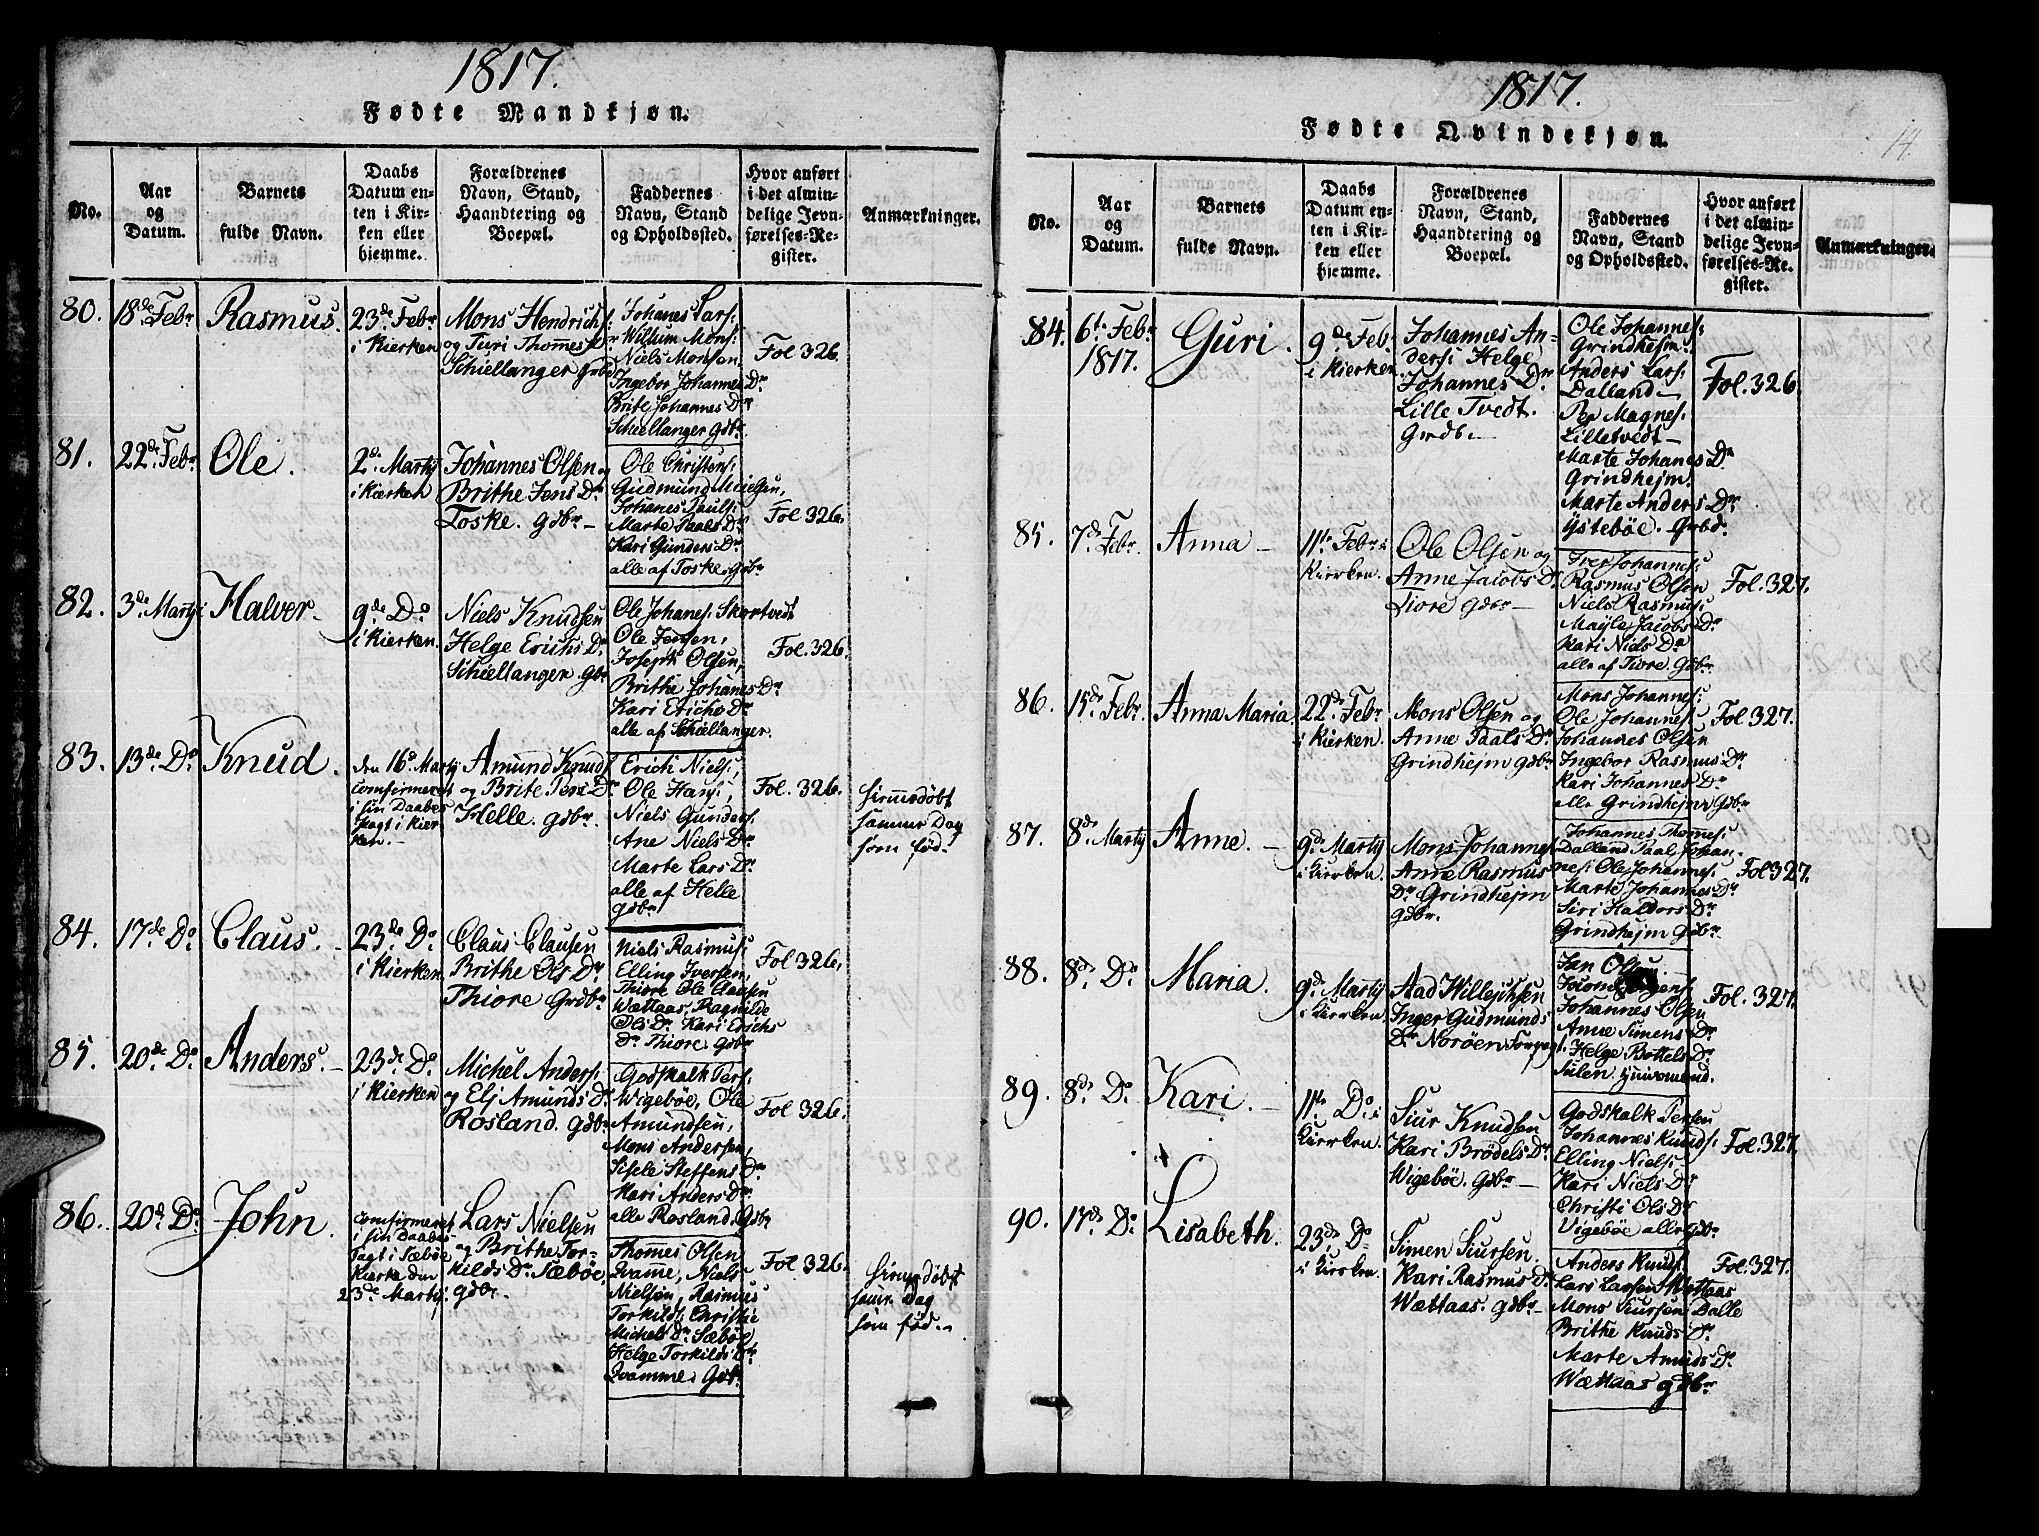 1817.
Fødte Mandkjøn.
No.
Aar
og
Datum.
Barnets
fulde Navn.
Daabs
Datum en-
ten i Kir-
ken eller
hjemme.
Forældrenes
Navn, Stand,
Haandtering og
Boepæl.
Faddernes
Navn, Stand
og Opholdssted.
Hvor anført
i det almin-
delige Jevn-
førelses-Re-
gister.
Anmærkninger.
80.
18de Febr
Rasmus.
23de Febr
i Kierken
Mons Hendrichs:
og Turi Thomes Dr
Schiellanger Grbd
Johanes Lars:
Willum Mons:
Niels Monsen
Ingebor Johannes Dr
Brite Johannes Dr
Schiellanger gdbr.
Fol 326.
81.
22de Febr
Ole.
2d Martij
i Kierken
Johannes Olsen og
Brithe Jens Dr
Toske. gdbr –
Ole Christens:
Gudmund Mielsen,
Johanes Pauls:
Marte Paals Dr
Kari Gunders Dr
alle af Toske. gdbr
Fol 326.
82.
3de Martij
Halver.
9de Do
i Kierken.
Niels Knudsen
Helge Erichs Dr
Schiellanger. gdbr
Ole Johanes: Skortvedt
Ole Jensen,
Joseph Olsen,
Brithe Johanes Dr
Kari Erichs Dr
alle af Schiellanger.
Fol. 326.
83.
13de Do
Knud.
den 16d Martij
comfirmeret
i sin Daabes
Pagt i Kier
ken. –
Amund Knuds
og Brite Pers Dr
Helle. gdbr.
Erich Niels:,
Ole Hans:,
Niels Gunders:
Ane Niels Dr
Marte Lars Dr
alle af Helle
gdbr
Fol. 326.
hiemedøbt
samme Dag
som fød.
84.
17de Do
Claus. –
23de Do
i Kierken
Claus Clausen
Brithe Ols Dr
Thiore Grdbr
Niels Rasmus:
Elling Iversen,
Thiore Ole Clausen
Wattaas, Ragnilde
Ols Dr Kari Erichs
Dr Thiore. gdbr
Fol 326.
85.
20de Do
Anders. –
23de Do
i Kierken
Michel Anders:
og Elj Amunds Dr
Rosland. gdbr
Godskalk Pers:
Wigebøe, Ole
Amundsen,
Mons Andersen,
Sisele Steffens Dr
Kari Anders Dr
alle Rosland. Gdbr
Fol 326.
86.
20d Do
John.
comfirmeret
i sin Daabes
Pagt i Sæbøe
Kierke den
23de Martij.
Lars Nielsen
og Brithe Tor-
kilds Dr Sæbøe,
gdbr.
Thomes Olsen
Qvamme, Niels
Nielsen, Rasmus
Torkilds: Christie
Michels Dr Sæbøe,
Helge Torkilds Dr
Qvamme. Gdbr
Fol 326.
hiemedøbt
samme Dag
som fød. –
1817.
14.
Fødte Qvindekjøn.
No.
Aar
og
Datum.
Barnets
fulde Navn.
Daabs
Datum en-
ten i Kir-
ken eller
hjemme.
Forældrenes
Navn, Stand,
Haandtering og
Boepæl.
Faddernes
Navn, Stand
og Opholdssted.
Hvor anført
i det almin-
delige Jevn-
førelses-Re-
gister.
Anmærkninger.
84.
6te Febr
1817.
Guri.
9de Feb
i Kierken
Johannes An-
ders: Helge
Johannes Dr
Lille Tvedt.
Grdb. –
Ole Johannes:
Grindhejm.
Anders Lars:
Dalland –
Per Magnes:
Lilletvedt –
Marte Johanes Dr
Grindhejm.
Marte Anders Dr
Ystebøe. Grbd.
Fol. 326.
85.
7de Febr.
Anna –
11te Febr i
Kierken.
Ole Olsen og
Anne Jacobs D.
Tiore gdbr –
Iver Johannes:
Rasmus Olsen
Niels Rasmus:
Mayle Jacobs Dr
Kari Niels Dr
alle af Tiore. Gdbr.
Fol. 327.
86.
15de Febr.
Anna Maria
22de Febr
i Kierken.
Mons Olsen og
Anne Paals Dr
Grindhejm gdbr
Mons Johannes:
Ole Johannes:
Johannes Olsen
Ingebor Rasmus Dr
Kari Johannes Dr
alle Grindhejm Gdbr
Fol 327.
87.
8de Martij
Anne. –
9d Martij
i Kierken.
Mons Johannes:
Anne Rasmus
Dr Grindhejm
gdbr.
Johannes Thomes:
Dalland Paal Johan-
nes: Ole Johannes:
Marte Johannes Dr
Siri Haldors Dr
Grindhejm Gdbr.
Fol 327.
88.
8de Do
Maria.
9d Martij
i Kierken.
Aad Willejchsen
Inger Gudmunds
Dr Norøen
Jan Olsen
Johannes Olsen
Anne Simens Dr
Helge Bottels Dr
Sulen
Fol. 327.
89.
8de Do
Kari. –
11te Do i
Kierken.
Siur Knudsen
Kari Brödels Dr
Wigebøe. Gdbr –
Godskalk Persen
Johannes Knuds:
Elling Niels:
Kari Niels Dr
Christi Ols Dr
Vigebøe alle gdbr
Fol. 327.
90.
17de Do
Lisabeth.
23de Do
i Kierken.
Simen Siursen
Kari Rasmus Dr
Wættaas. gdbr –
Anders Knuds:
Lars Larsen Wættaas
Mons Siursen Dalle
Brithe Knuds Dr
Marte Amuds Dr
Wættaas gdbr
Fol. 327.